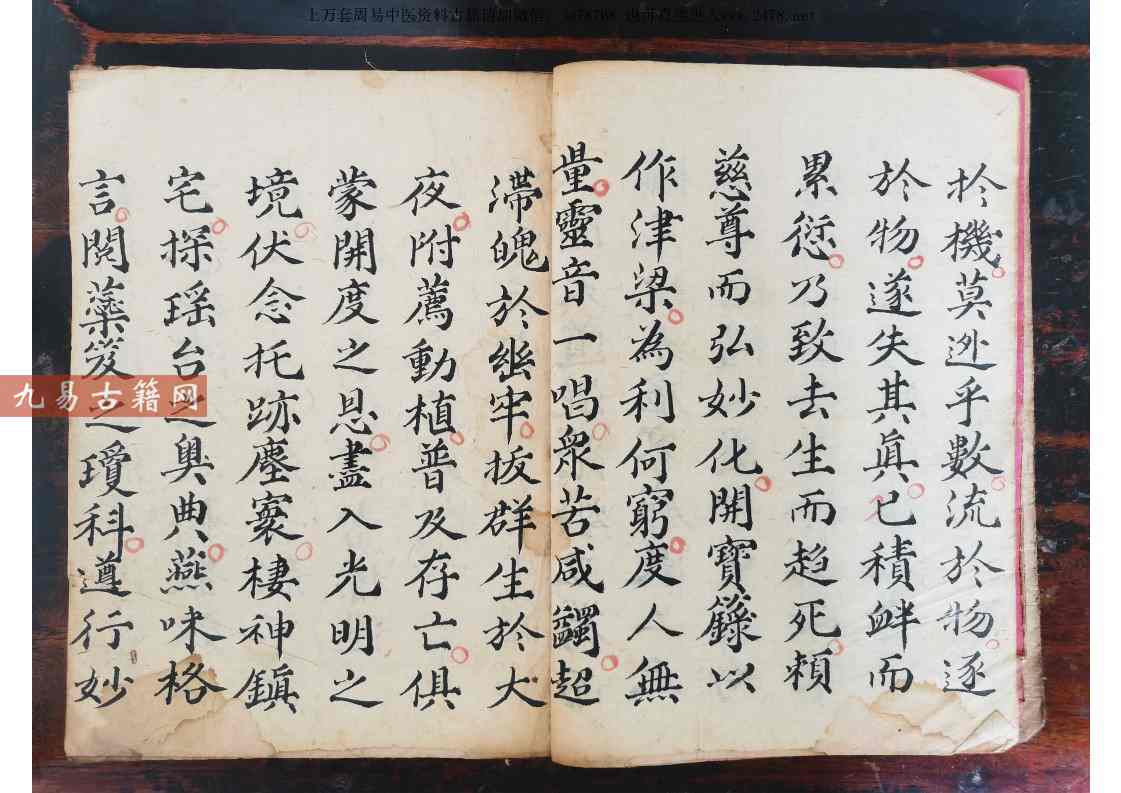 上万套周易中医资料古籍请加微信：3478788 也可直接进入www.2478.net
扵機莫迯乎數流扵物逐
於物遂失其真已積衅而
累愆乃致去生而趋死頼
慈尊而弘妙化開寶籙以
作津梁為利何窮度人無
量靈音一唱衆苦咸蠲超
滯魄於幽牢拔群生於大
夜附薦動植普及存亡俱
蒙開度之恩盡入光明之
境伏念托跡塵寰棲神鎮
宅探瑶台之奥典燕味格
言閱蘂笈之瓊科遵行妙
九易古籍网